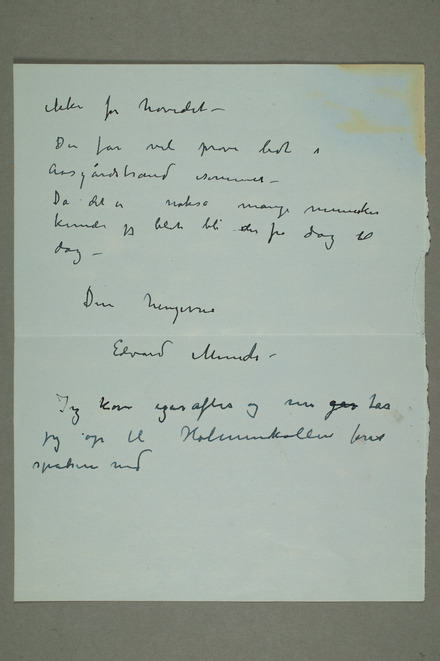 ikke for hovedet –
Du får vel prøve lidt i
Aasgårdstrand isommer –
Da det er nokså mange mennesker
kunde jeg blot bli der fra dag til
dag –
Din hengivne
Edvard Munch –
Jeg kom igår aftes og nu går tar
jeg op til Holmenkollen
spadsere ned